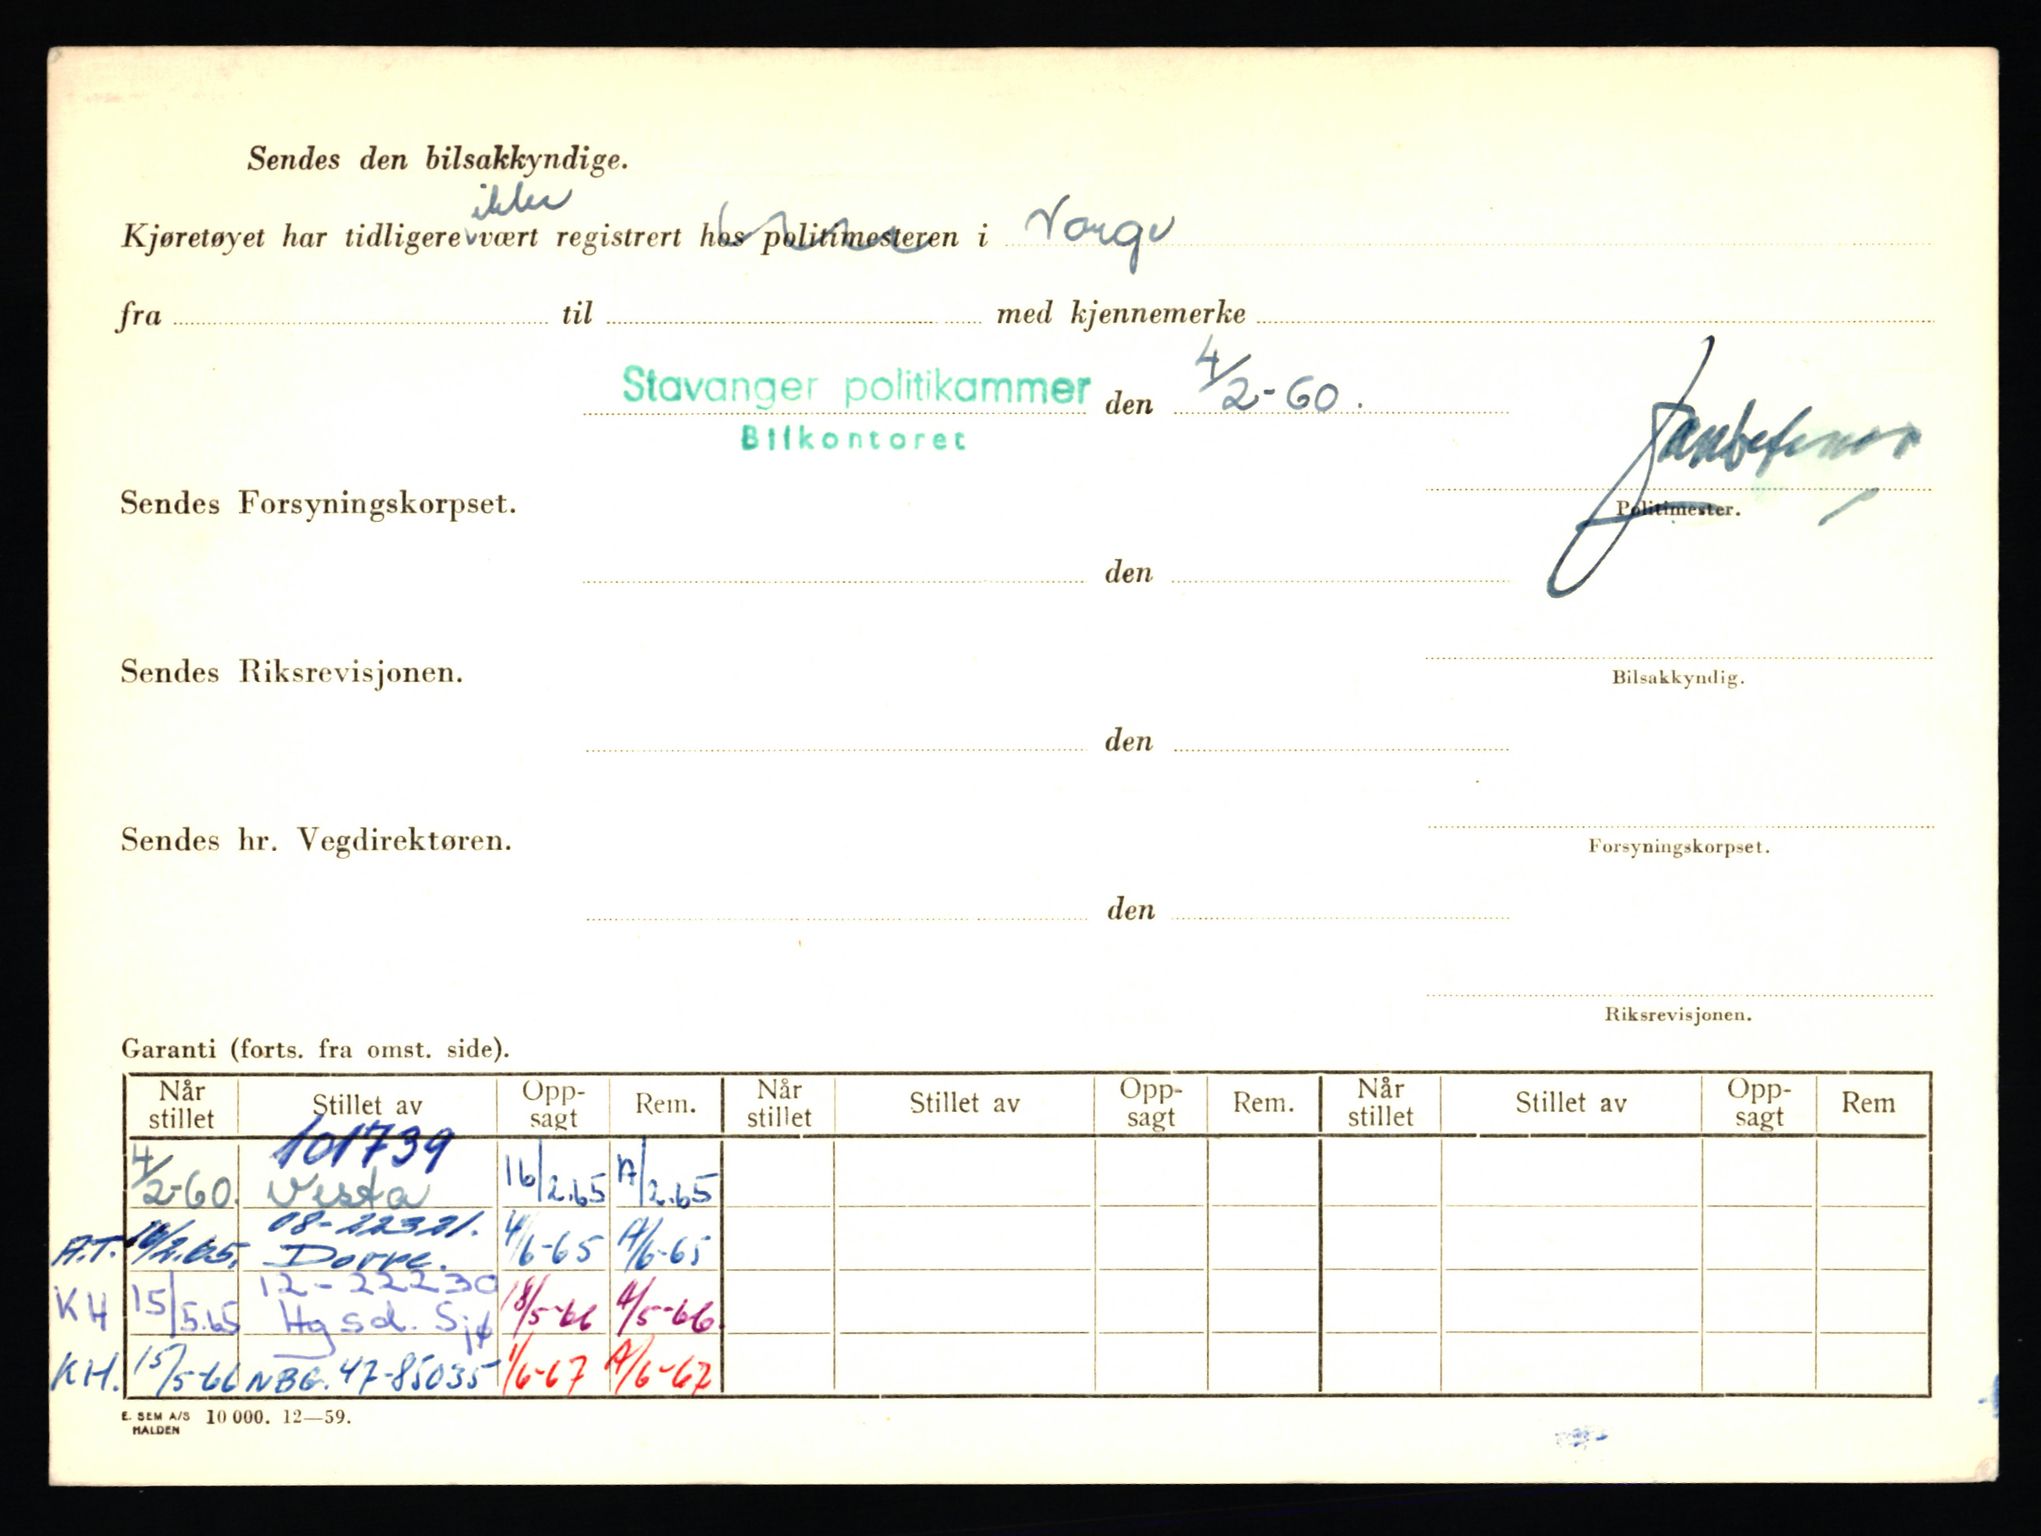 Sendes den bilsakkyndige.
ikke
Kjøretøyet har tidligere vært registrert hos politimesteren i Norge
fra til med kjennemerke
Stavanger politikammer den 4/2-60.
Bilkontoret
Sendes Forsyningskorpset.
Politimester.
den
Sendes Riksrevisjonen.
Bilsakkyndig.
den
Sendes hr. Vegdirektøren.
Forsyningskorpset.
den
Riksrevisjonen.
Garanti (forts. fra omst. side).
Når stillet Stillet av Opp-sagt Rem. Når stillet Stillet av Opp-sagt Rem. Når stillet Stillet av Opp-sagt Rem
101739
4/2-60. Vesta 16/2.65 17/2.65
08-22321.
A.T. 16/2.65. Dovre. 4/6-65 A/6-65
12-22230
KH 15/5.65 Hgsd. Sjø 18/5-66 A/5-66.
KH. 15/5-66 NBG. 47-85035 1/6-67 A/6-67
E. SEM A/S 10 000. 12—59.
HALDEN